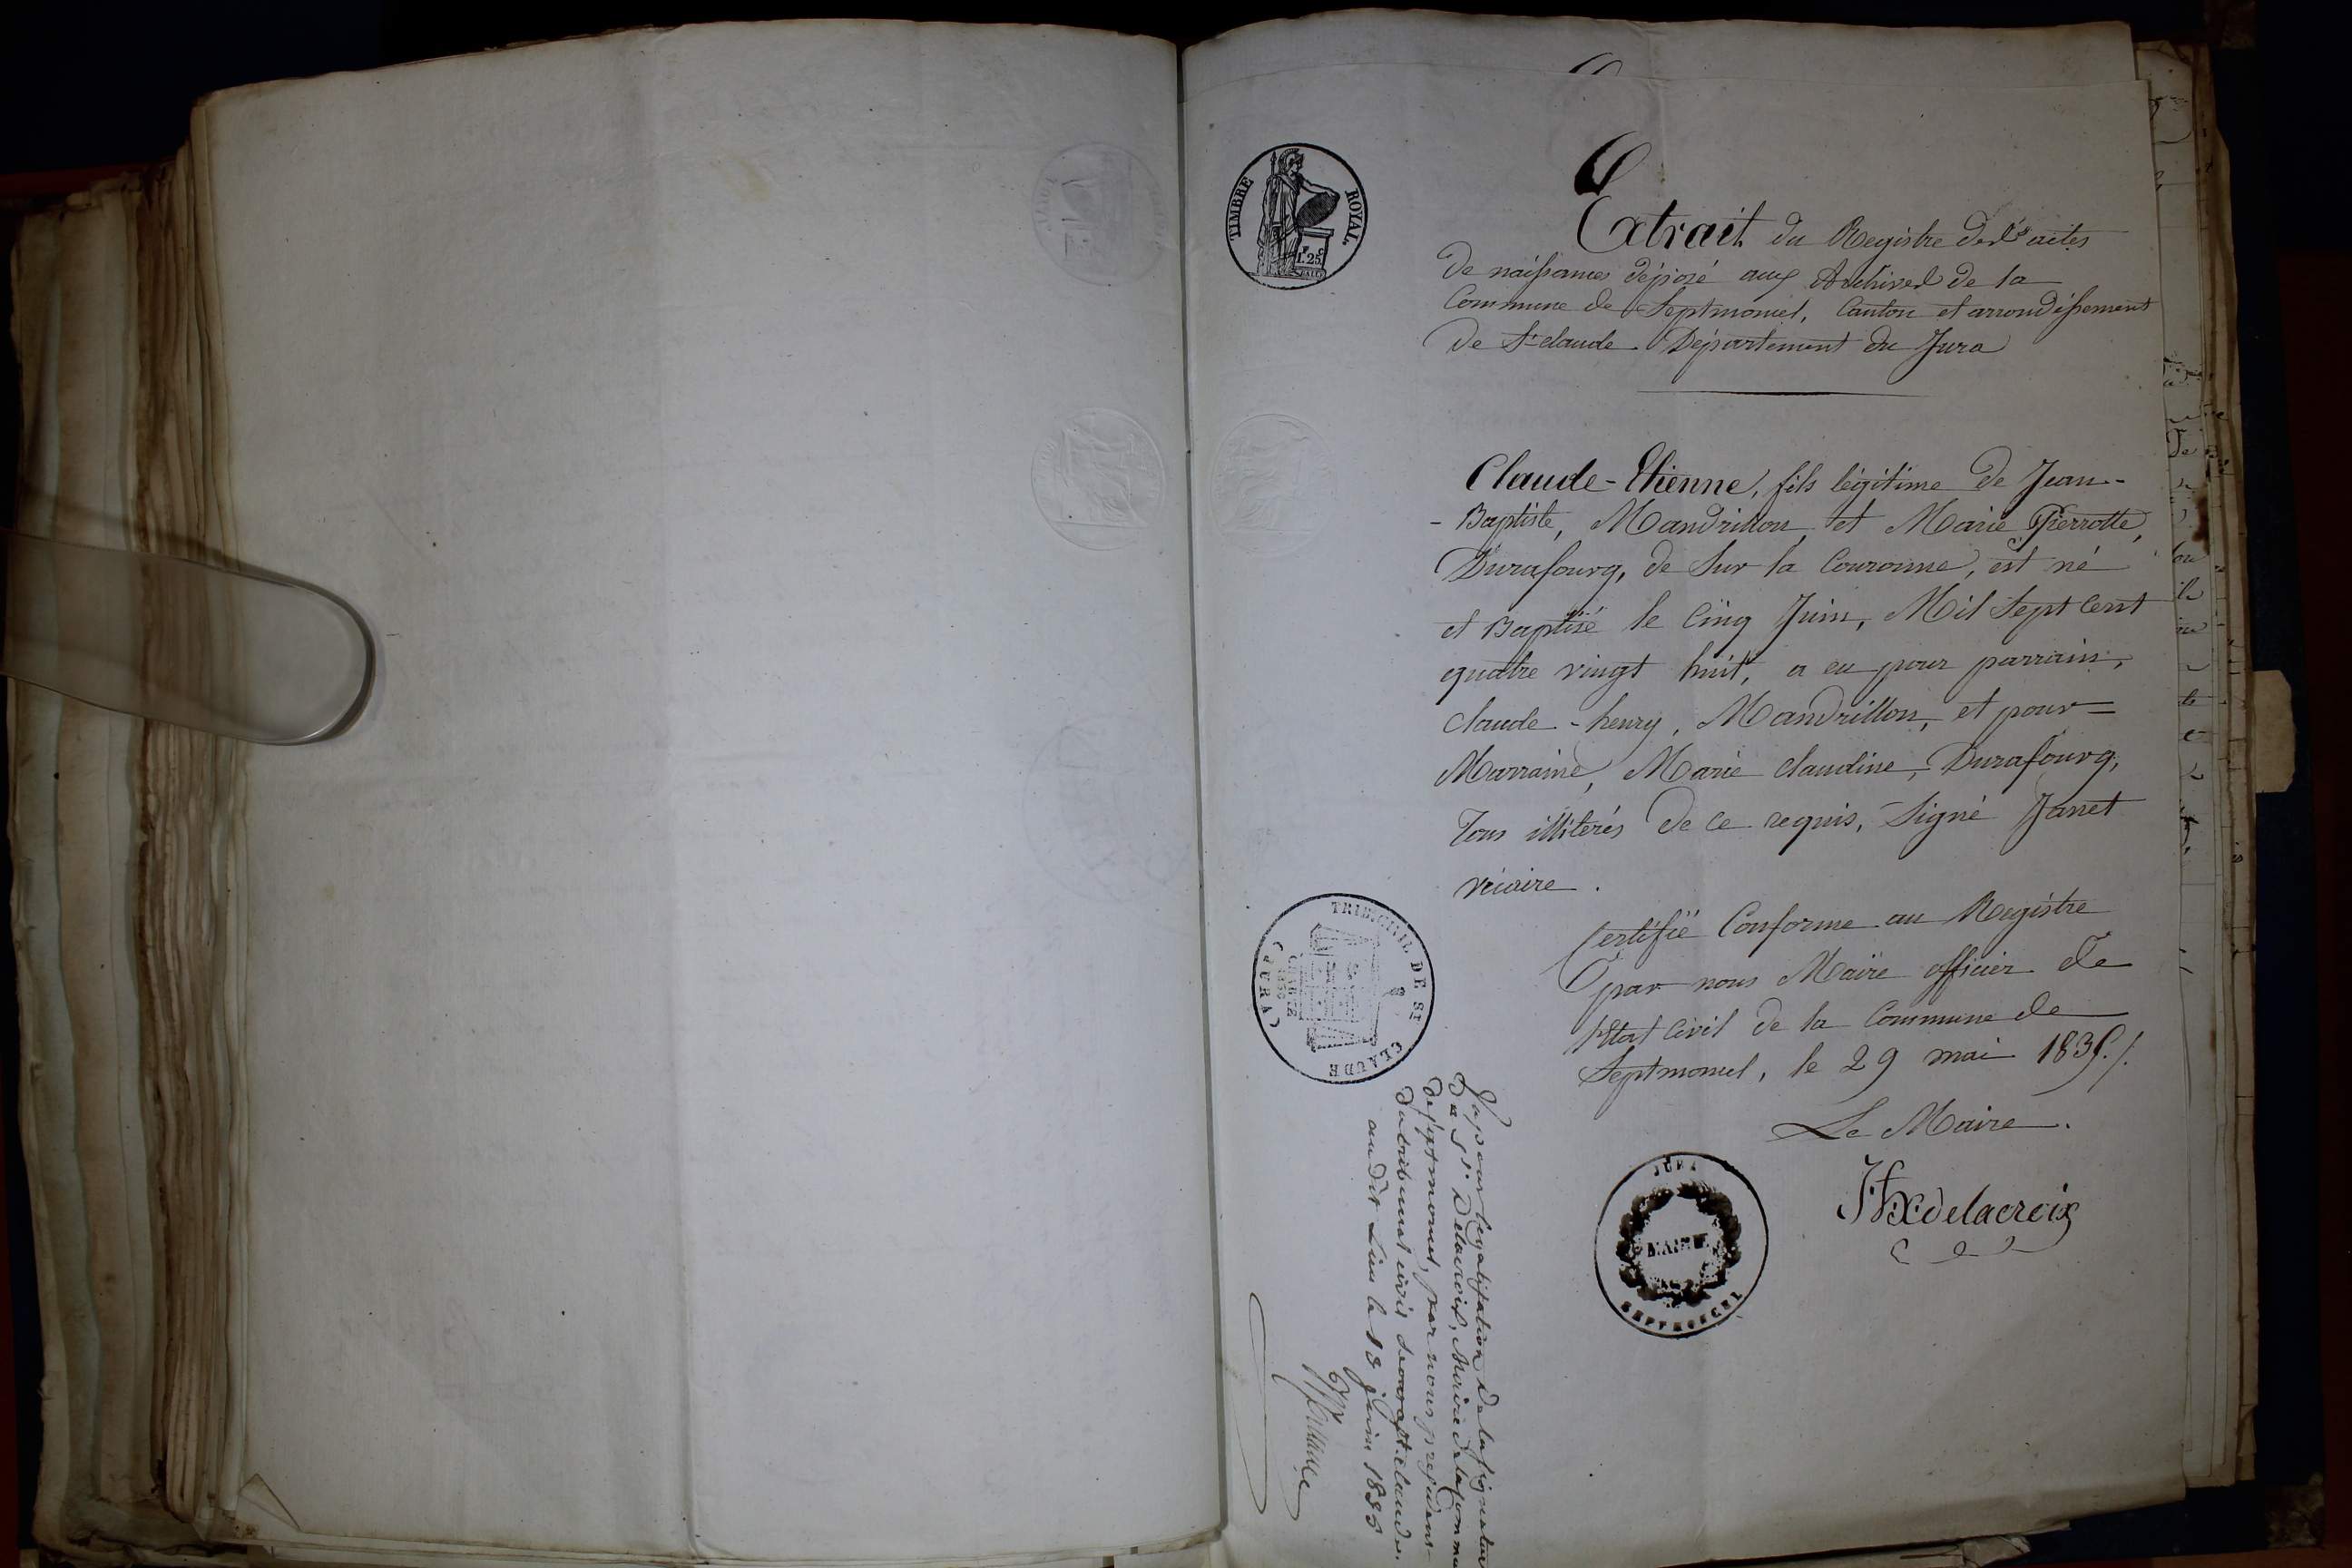 TIMBRE ROYAL
1. 25
Extrait du Registre des actes
de naissances déposé aux Archives de la
Commune de Septmoncel, Canton et arrondissement
de St-claude. Département du Jura
Claude-Etienne, fils légitime de Jean-
-Baptiste, Mandrillon, et Marie Pierrotte,
Durafourg, de Sur la Couronne, est né
et Baptisé le Cinq Juin, Mil Sept Cent
quatre vingt huit, a eu pour parrain,
Claude-henry, Mandrillon, et pour=
Marraine, Marie claudine, Durafourg,
Tous illiterés de ce requis, Signé Janet
vicaire.
Certifié Conforme au Registre
par nous Maire officier de
l'Etat Civil de la Commune de
Septmoncel, le 29 mai 1835./.
Le Maire.
delacroix
JURA
MAIRIE
SEPTMONCEL
TRIBUNAL DE ST CLAUDE
(JURA)
Vu pour legalisation de la signature
du Sr. Delacroix, Maire de la commune
de Septmoncel, par nous president
du tribunal civil de St. claude.
au dit Lieu le 18 juin 1835